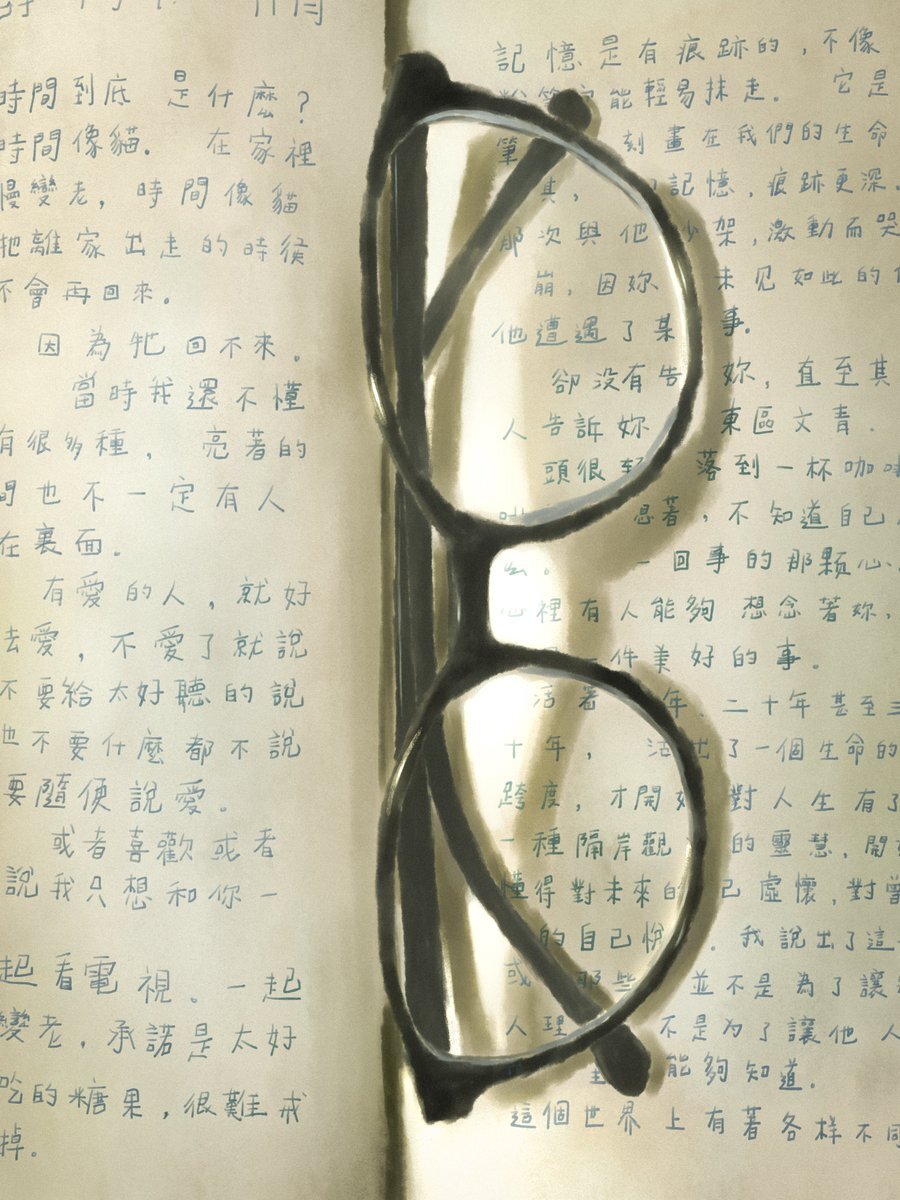 時間到底 是什麼?
時間像貓. 在家裡
慢變老,時間像貓
把離家出走的時候
不會再回來.
因為牠回不來.
當時我還不懂
有很多種, 亮著的
間也不一定有人
在裏面.
有愛的人,就好
去愛,不愛了就說
不要給太好聽的說
也不要什麼都不說
要隨便說愛.
或者喜歡或者
說我只想和你一
起看電視.一起
變老.承諾是太好
吃的糖果,很難戒
掉.
記憶是有痕跡的,不像
能輕易抹走. 它是
筆 刻畫在我們的生命
其, 記憶,痕跡更深.
那次與他 架,激動而哭
崩,因妳 未见如此的
他遭遇了某 事.
卻没有告 妳,直至其
人告訴妳 東區文青.
頭很 落到一杯咖啡
著,不知道自己
一回事的那颗心.
心裡有人能夠 想念著妳,
件美好的事.
活著 年、二十年甚至三
十年, 活出了一個生命的
跨度,才開始對人生有了
一種隔岸觀 的靈慧,開始
懂得對未來的 己虛懷,對當
的自己悅 .我說出了這
或 那些 並不是為了讓
人理 不是为了讓他人
能夠知道.
這個世界上有著各樣不同